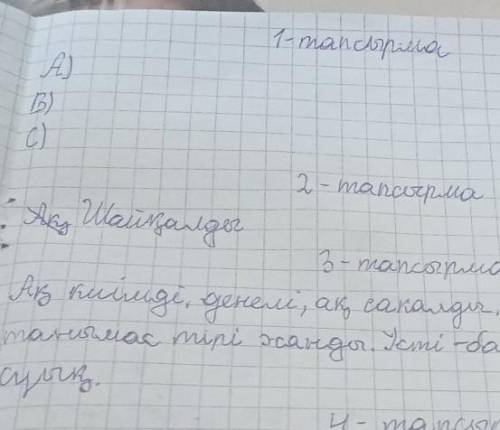 1-тапсырма
А)
В)
С)
2-тапсырма
Шайқалды
3-тапсырма
Ақ киімді, денелі, ақ сакалды,
танымас тірі жанды. Үсті-ба
суық.
4-тапсы